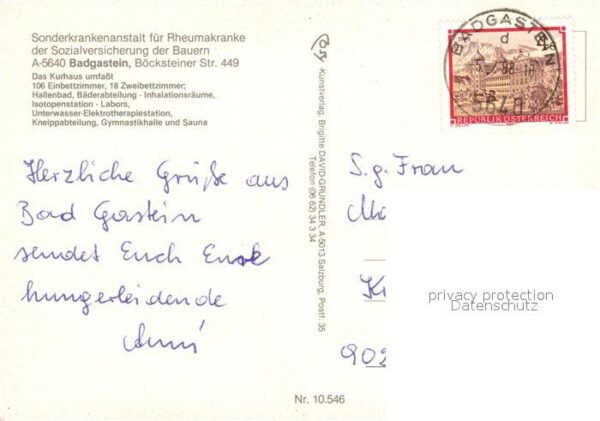 Sonderkrankenanstalt für Rheumakranke
der Sozialversicherung der Bauern
A-5640 Badgastein, Böcksteiner Str. 449
Das Kurhaus umfaßt
106 Einbettzimmer, 18 Zweibettzimmer;
Hallenbad, Bäderabteilung · Inhalationsräume,
Isotopenstation · Labors,
Unterwasser-Elektrotherapiestation,
Kneippabteilung, Gymnastikhalle und Sauna
Herzliche Grüße aus
Bad Gastein
sendet Euch Eure
hungerleidende
Kunstverlag, Brigitte DAVID-GRÜNDLER, A-5013 Salzburg, Postf. 35
Telefon (06 62) 34 3 34
BADGASTEIN
d
5640
REPUBLIK ÖSTERREICH
S.g. Frau
Ma
K
902
privacy protection
Datenschutz
Nr. 10.546